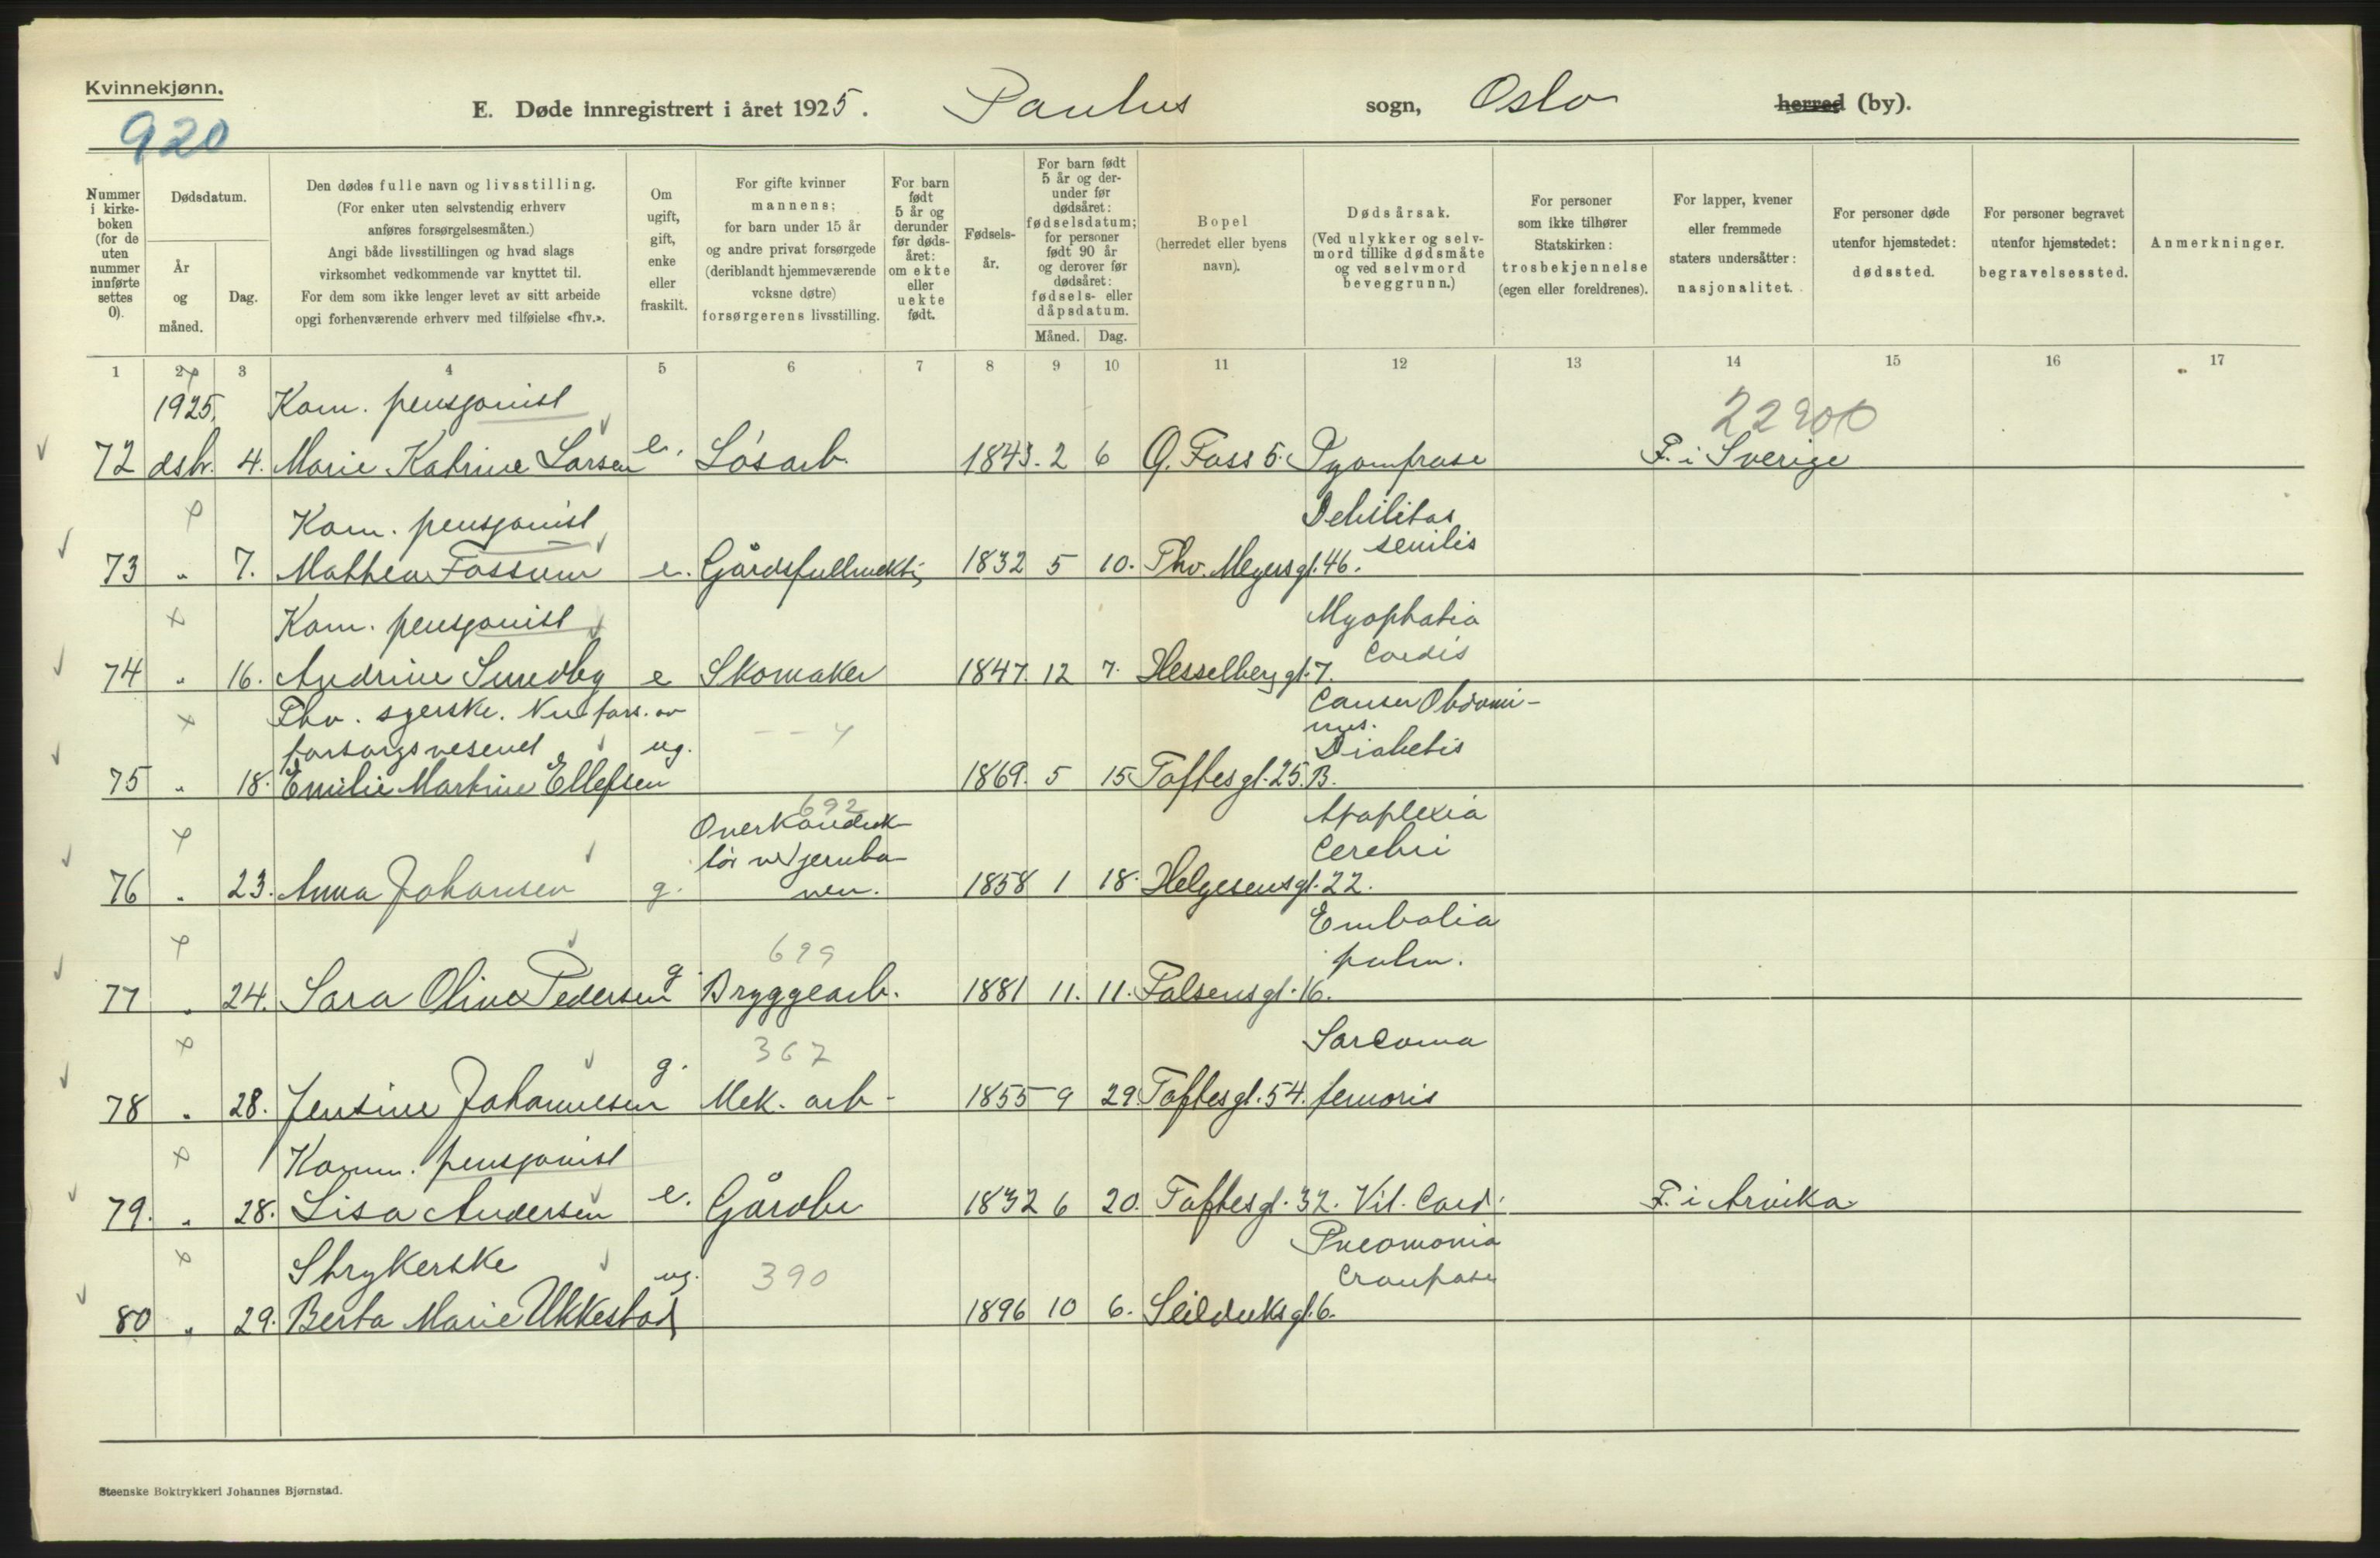 Kvinnekjønn.
920
E. Døde innregistrert i året 1925. Paulus sogn, Oslo herred (by).
Nummer i kirke- boken (for de uten nummer innførte settes 0).
Dødsdatum.
År og måned.
Dag.
Den dødes fulle navn og livsstilling.
(For enker uten selvstendig erhverv
anføres forsørgelsesmåten.)
Angi både livsstillingen og hvad slags
virksomhet vedkommende var knyttet til.
For dem som ikke lenger levet av sitt arbeide
opgi forhenværende erhverv med tilføielse «fhv.».
Om ugift, gift, enke eller fraskilt.
For gifte kvinner
mannens;
for barn under 15 år
og andre privat forsørgede
(deriblandt hjemmeværende
voksne døtre)
forsørgerens livsstilling.
For barn født 5 år og derunder før døds- året: om ekte eller uekte født.
Fødsels- år.
For barn født 5 år og der- under før dødsåret: fødselsdatum; for personer født 90 år og derover før dødsåret: fødsels- eller dåpsdatum.
Måned. Dag.
Bopel
(herredet eller byens
navn).
Dødsårsak.
(Ved ulykker og selv-
mord tillike dødsmåte
og ved selvmord
beveggrunn.)
For personer
som ikke tilhører
Statskirken:
trosbekjennelse
(egen eller foreldrenes).
For lapper, kvener
eller fremmede
staters undersåtter:
nasjonalitet.
For personer døde
utenfor hjemstedet:
dødssted.
For personer begravet
utenfor hjemstedet:
begravelsessted.
Anmerkninger.
1 2 3 4 5 6 7 8 9 10 11 12 13 14 15 16 17
1925. Kom. pensjonist 22900
72 dsbr. 4. Marie Katrine Larsen e. Løsarb. 1843. 2 6 Q. Foss 5. F. i Sverige
Kom. pensjonist Debilitas
senilis
73 " 7. Mathea Fossum e. Gårdsfullmektig 1832 5 10. Thv. Meyersgt. 46.
Kom. pensjonist Myophatia
Cordis
74 " 16. Andrine Smedby e Skomaker 1847. 12 7. Hesselberggt. 7.
Fhv. syerske. Nu fors. av
forsorgsvesenet ug. Cancer Abdomi-
nus.
Diabetis
75 " 18. Emilie Martine Ellefsen 1869. 5 15 Toftesgt. 25. B.
692
Overkonduk-
tør v/ jernba-
nen. Apoplexia
Cerebri
76 " 23. Anna Johansen g. 1858 1 18. Helgesensgt. 22.
699 Embolia
pulm.
77 " 24. Sara Oliva Pedersen g. Bryggearb. 1881 11. 11. Falsensgt. 16.
367 Sarcoma
78 " 28. Jensine Johannesen g. Mek. arb. 1855 9 29. Toftesgt. 54. femoris
Komm. pensjonist
79. " 28. Lisa Andersen e. Gårdbr 1832 6 20. Toftesgt. 32. Vit. Cord. F. i Arvika
Strykerske ug. 390 Pneomonia
Croupose
80 " 29. Berta Marie Ukkestad 1896 10 6. Seilduksgt. 6.
Steenske Boktrykkeri Johannes Bjørnstad.